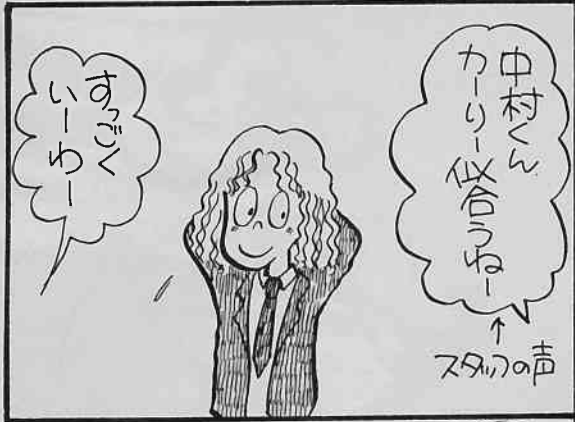 中村くん
カーリー似合うねー
↑
スタッフの声
すっごく
いーわー